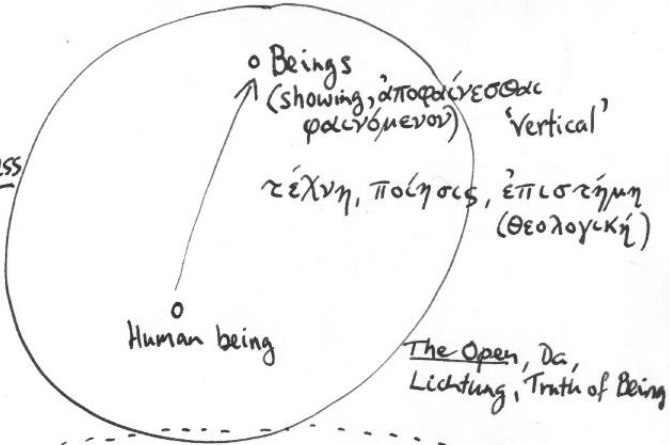 Beings
(showing, ἀποφαίνεσθαι
φαινόμενον) 'vertical'
ss
τέχνη, ποίησις, ἐπιστήμη
(θεολογική)
Human being
The Open, Da,
Lichtung, Truth of Being